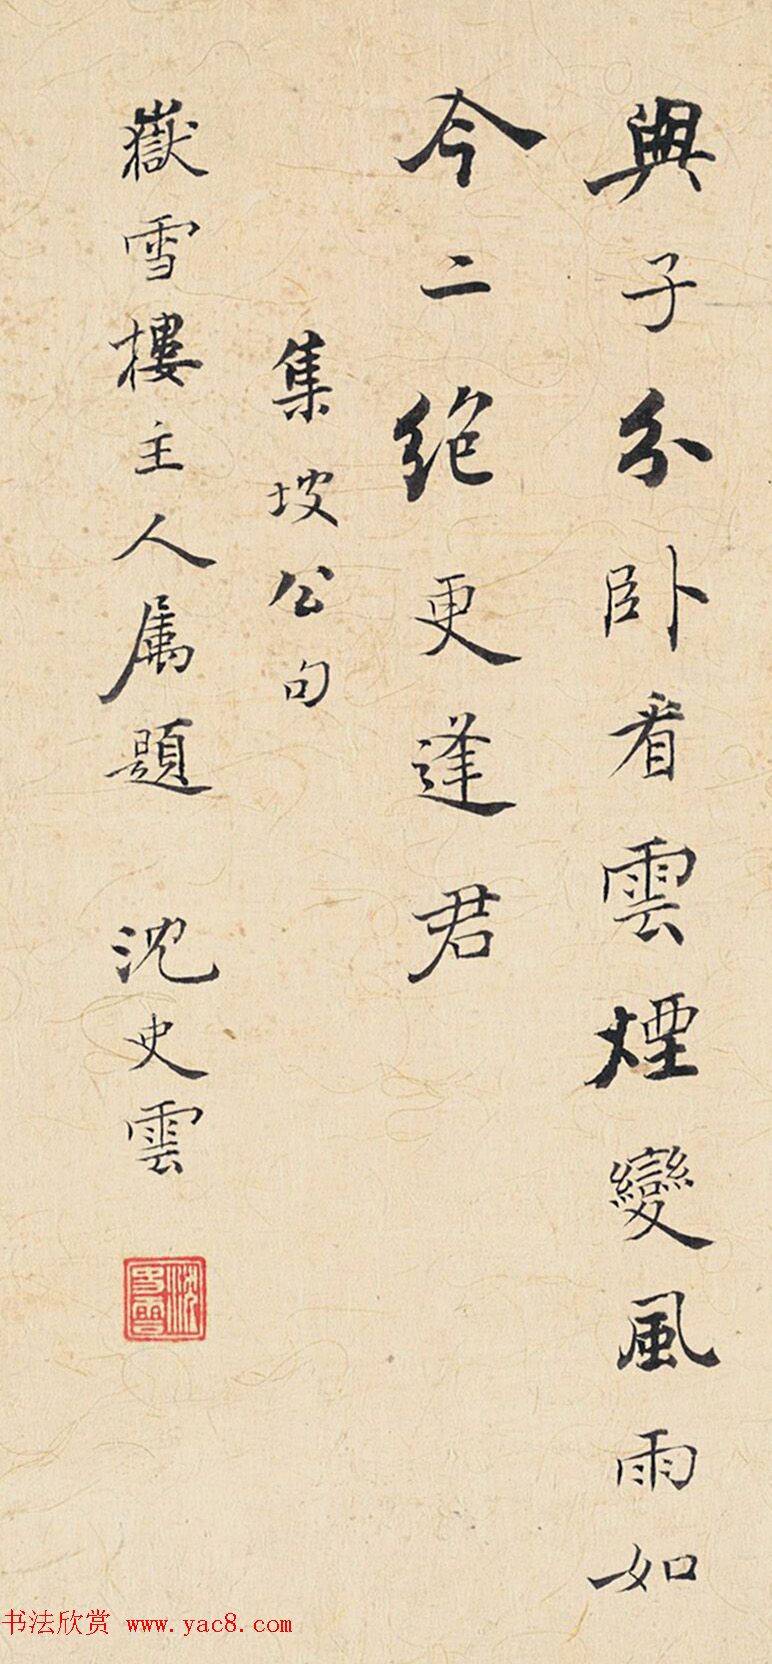 與子分卧看雲煙變風雨如
今二絶更逢君
集坡公句
嶽雪樓主人属題 沈史雲
沈史雲
书法欣赏 www.yac8.com